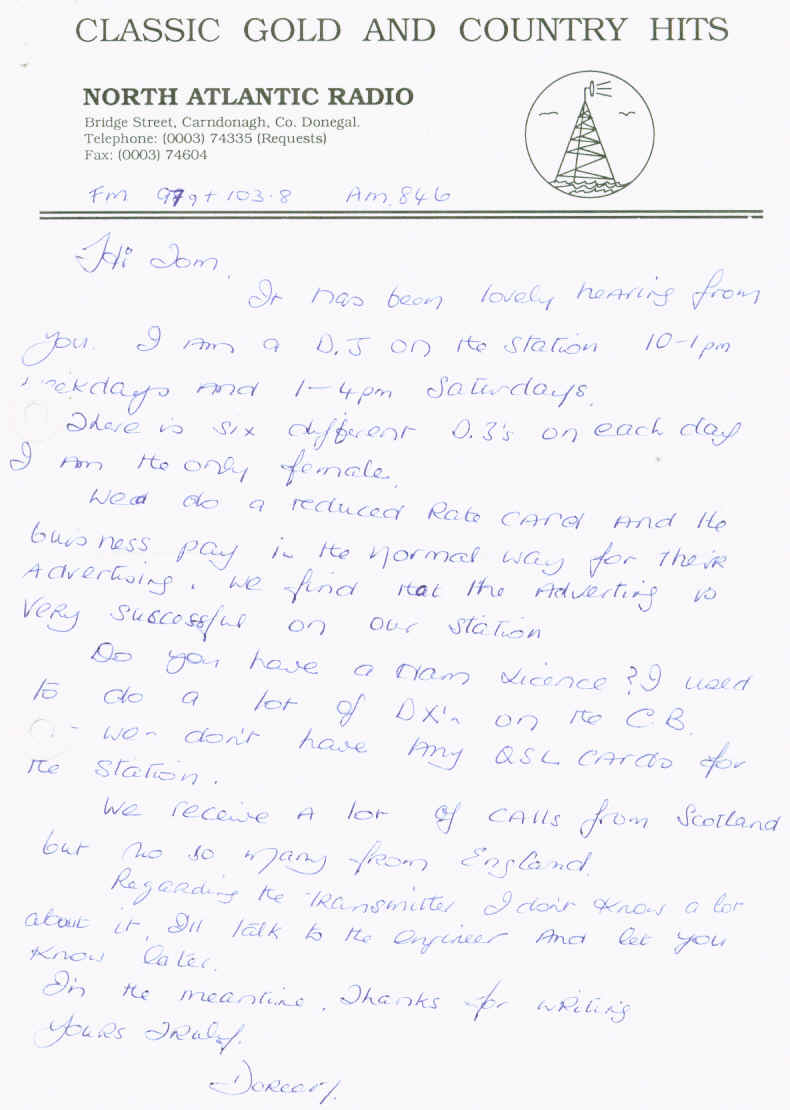 CLASSIC GOLD AND COUNTRY HITS
NORTH ATLANTIC RADIO
Bridge Street, Carndonagh, Co. Donegal.
Telephone: (0003) 74335 (Requests)
Fax: (0003) 74604
Fm 97.9 + 103.8 Am 846
Hi Tom,
It has been lovely hearing from
you. I am a D.J on the station 10-1pm
weekdays and 1-4pm Saturdays.
There is six different D.J's on each day
I am the only female.
We do a reduced Rate Card and the
buisness pay in the normal way for their
Advertising. We find that the Adverting is
very successful on our station
Do you have a Ham Licence? I used
to do a lot of DX'n on the C.B.
- We - don't have any QSL cards for
the station.
We receive a lot of calls from Scotland
but no so many from England.
Regarding the transmitter I don't know a lot
about it, I'll talk to the engineer and let you
know later.
In the meantime, Thanks for writing
Yours Truly.
Doreen.